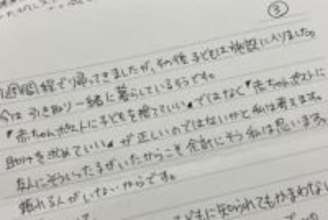 ③
1週間程で帰ってきましたが、その後子どもは施設に入りました。
今は引き取り一緒に暮らしているそうです。
"赤ちゃんポストに子どもを捨てていい"ではなく"赤ちゃんポストに
助けを求めていい"が正しいのではないかと私は考えます。
友人にそういった子がいたからこそ余計にそう私は思います。
頼れる人がいないからです。
子どもに知られてもかまわない